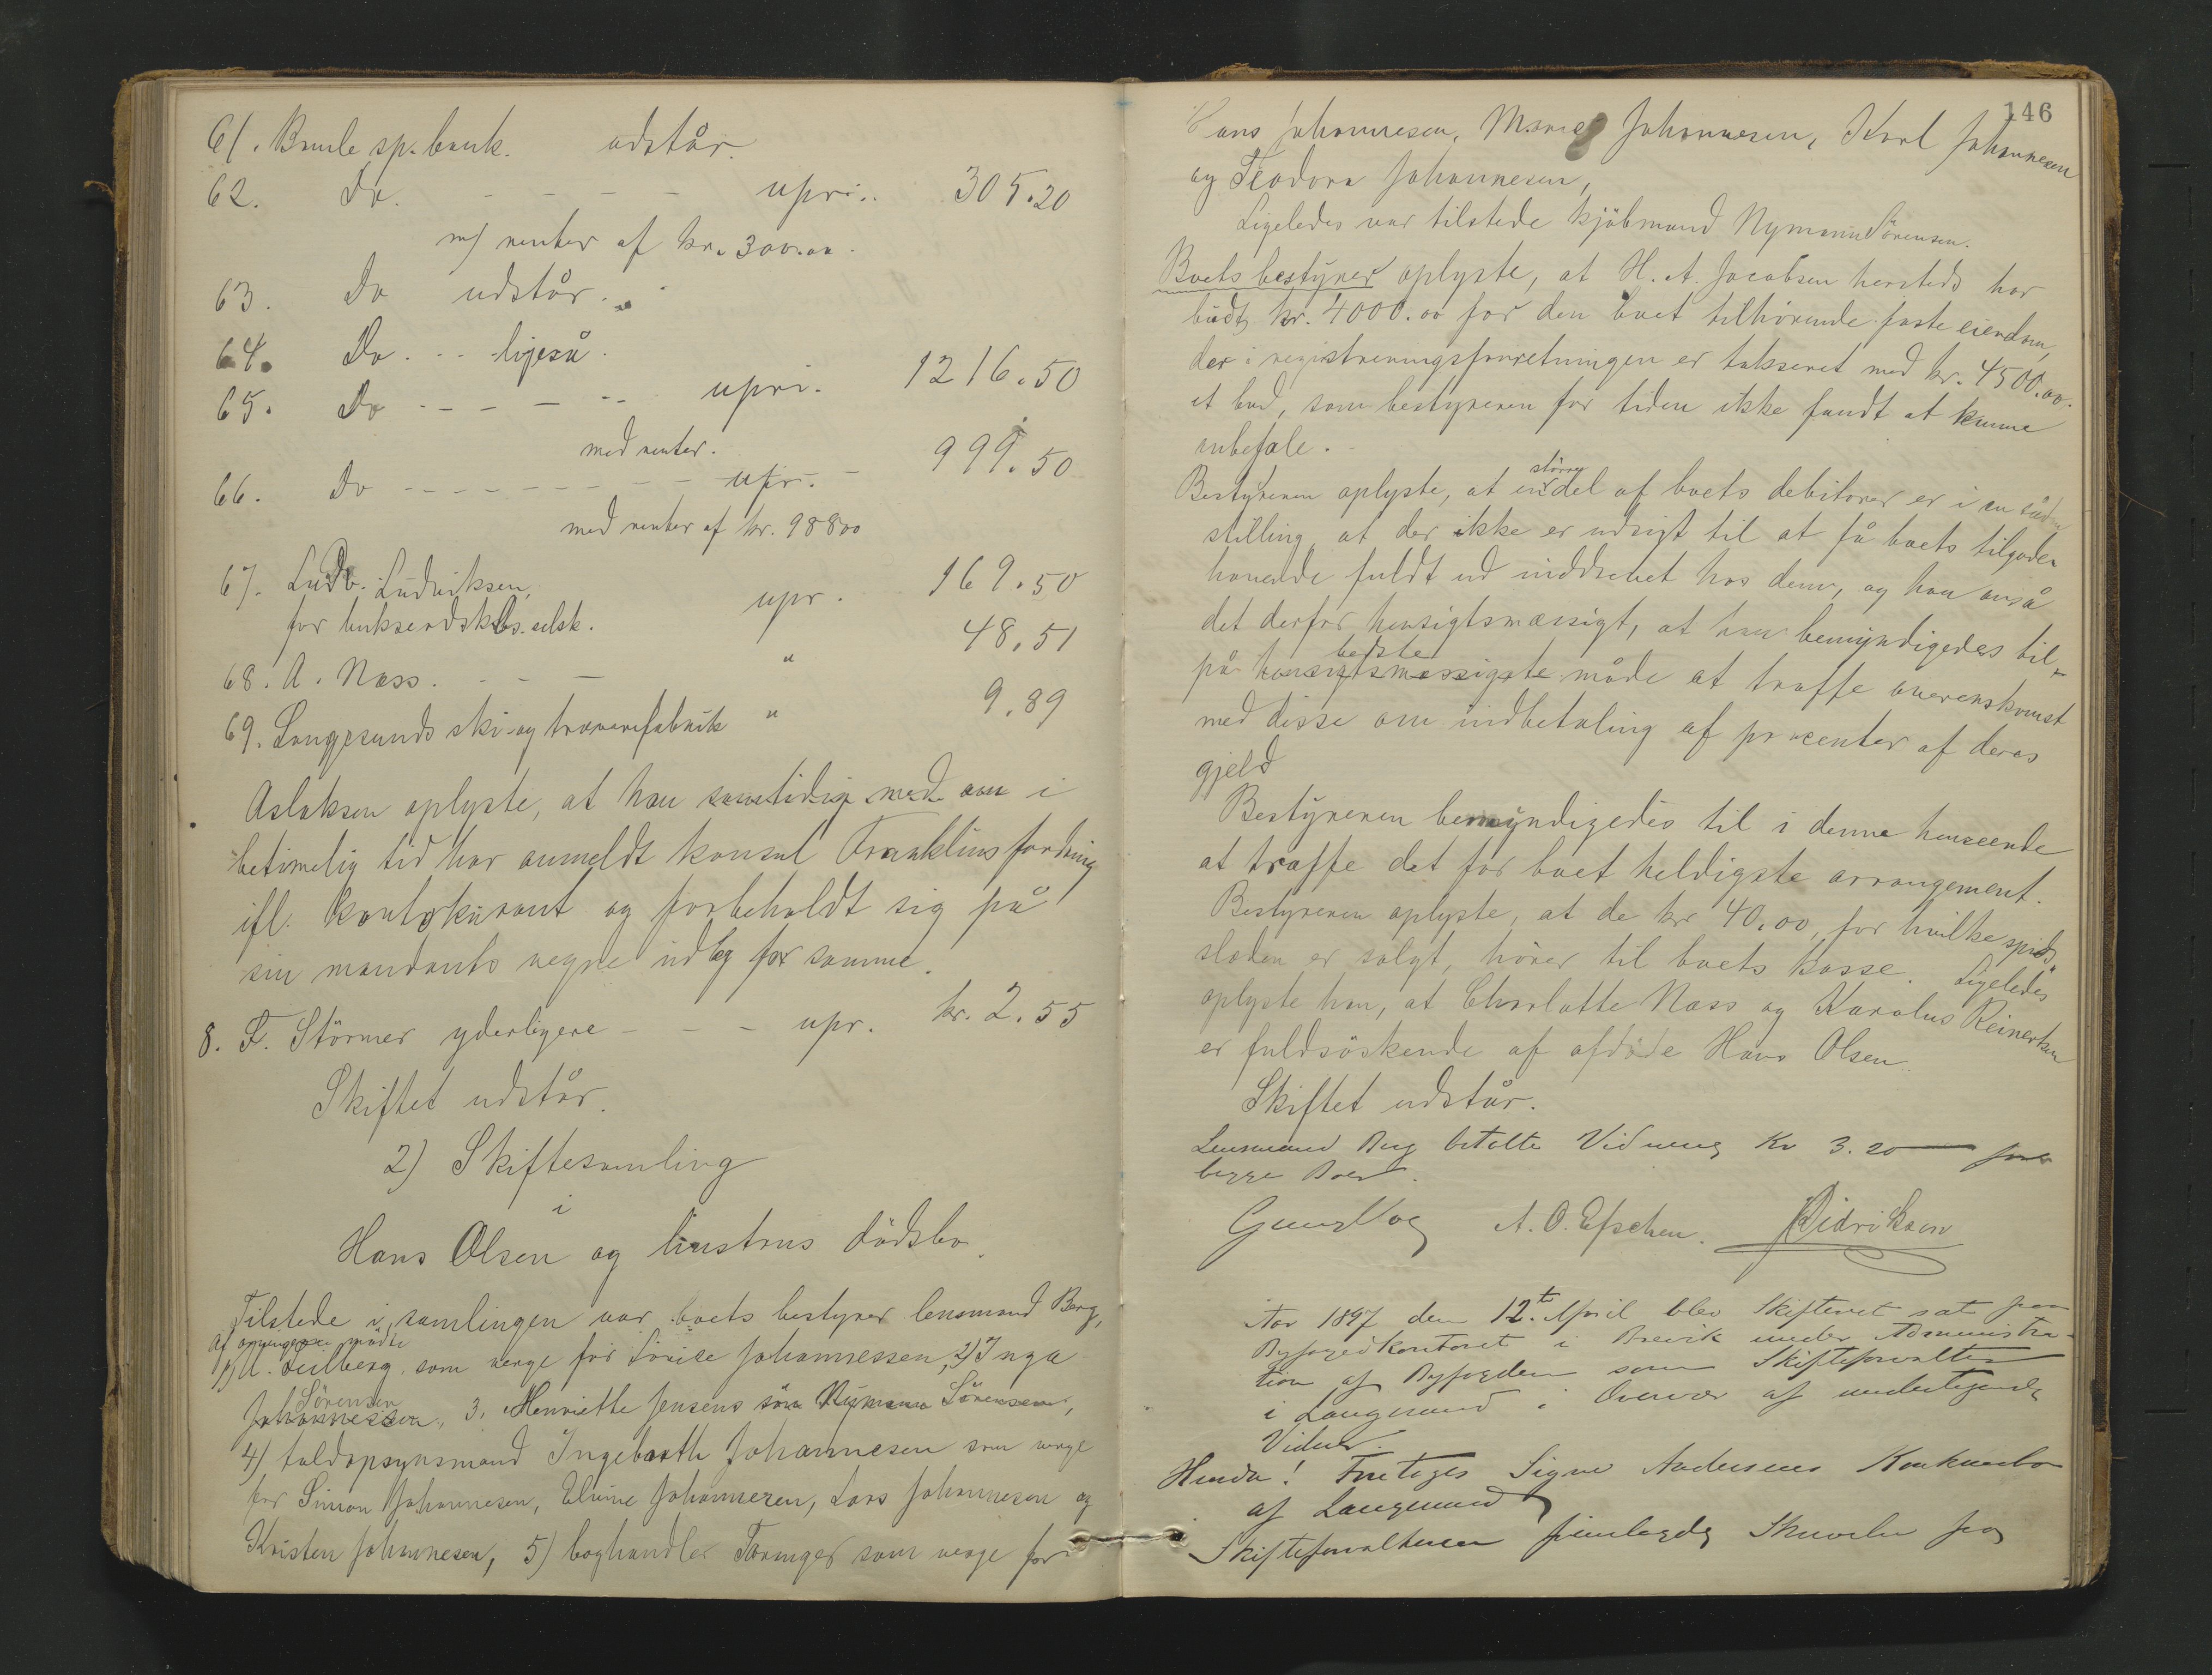 61. Bamle sp. bank. udstår.
62. Do. - - - - upri.. 305.20
m/ renter af kr. 300.00.
63. Do udstår.
64. Do. - - ligeså.
65. Do - - - - - upri. 1216.50
med renter.
66. Do - - - - - - - - upr. - 999.50
med renter af kr. 98800
67. Ludv. Ludviksen,
for buksendskbs. selsk. upr. 169.50
68. A. Næss. - - - " 48.51
69. Langesunds ski- og trævarefabrik " 9.89
Aslaksen oplyste, at han samtidig med om i
betimelig tid har anmeldt konsul Franklins fordring
ifl. kontokurant og forbeholdt sig på
sin mandants vegne udlæg for samme.
8. F. Störmer yderligere - - - upr. kr. 2.55
Skiftet udstår.
2) Skiftesamling
i
Hans Olsen og hustrus dödsbo.
Tilstede i samlingen var boets bestyrer lensmand Berg,
af arvingerne mödte
1) A. Lulberg som verge for Lovise Johannessen, 2) Inga
Sörensen
Johannessen, 3. Henriette Jensens sön Nymann Sörensen,
4) toldopsynsmand Ingebreth Johannesen som verge
for Simon Johannesen, Elvine Johannesen, Lars Johannesen og
Kristen Johannesen, 5) boghandler Tvringer som verge for
146
Hans Johannesen, Marie Johannesen, Karl Johannesen
og Teodora Johannesen,
Ligeledes var tilstede kjöbmand Nymann Sörensen.
Boets bestyrer oplyste, at H. A. Jacobsen hersteds har
budt kr. 4000.00 for den boet tilhörende faste eiendom,
der i registreringsforretningen er takseret med kr. 4500.00.
et bud, som bestyreren for tiden ikke fandt at kunne
anbefale.
större
Bestyreren oplyste, at en del af boets debitorer er i en sådan
stilling, at der ikke er udsigt til at få boets tilgode-
havende fuldt ud inddrevet hos dem, og han anså
det derfor hensigtsmæssigt, at han bemyndigedes til
bedste
på hensigtsmæssigste måde at træffe overenskomst
med disse om indbetaling af procenter af deres
gjeld
Bestyreren bemyndigedes til i denne henseende
at træffe det for boet heldigste arrangement.
Bestyreren oplyste, at de kr 40.00, for hvilke spids-
slæden er solgt, hörer til boets kasse. Ligeledes
oplyste han, at Charlotte Næss og Karolus Reinertsen
er fuldsöskende af afdöde Hans Olsen.
Skiftet udstår.
Lensmand Berg betalte Vidnerne Kr 3.20 for
begge Boer.
A. O. Efschen. Didriksen
Aar 1897 den 12te April blev Skifteret sat paa
Byfogedkontoret i Brevik under Administra-
tion af Byfogden som Skifteforvalter
i Langesund i Overvær af undertegnede
Vidner.
Hvorda! Foretoges Signe Andersens Konkursbo
af Langesund
Skifteforvalteren fremlagde Skrivelse fra